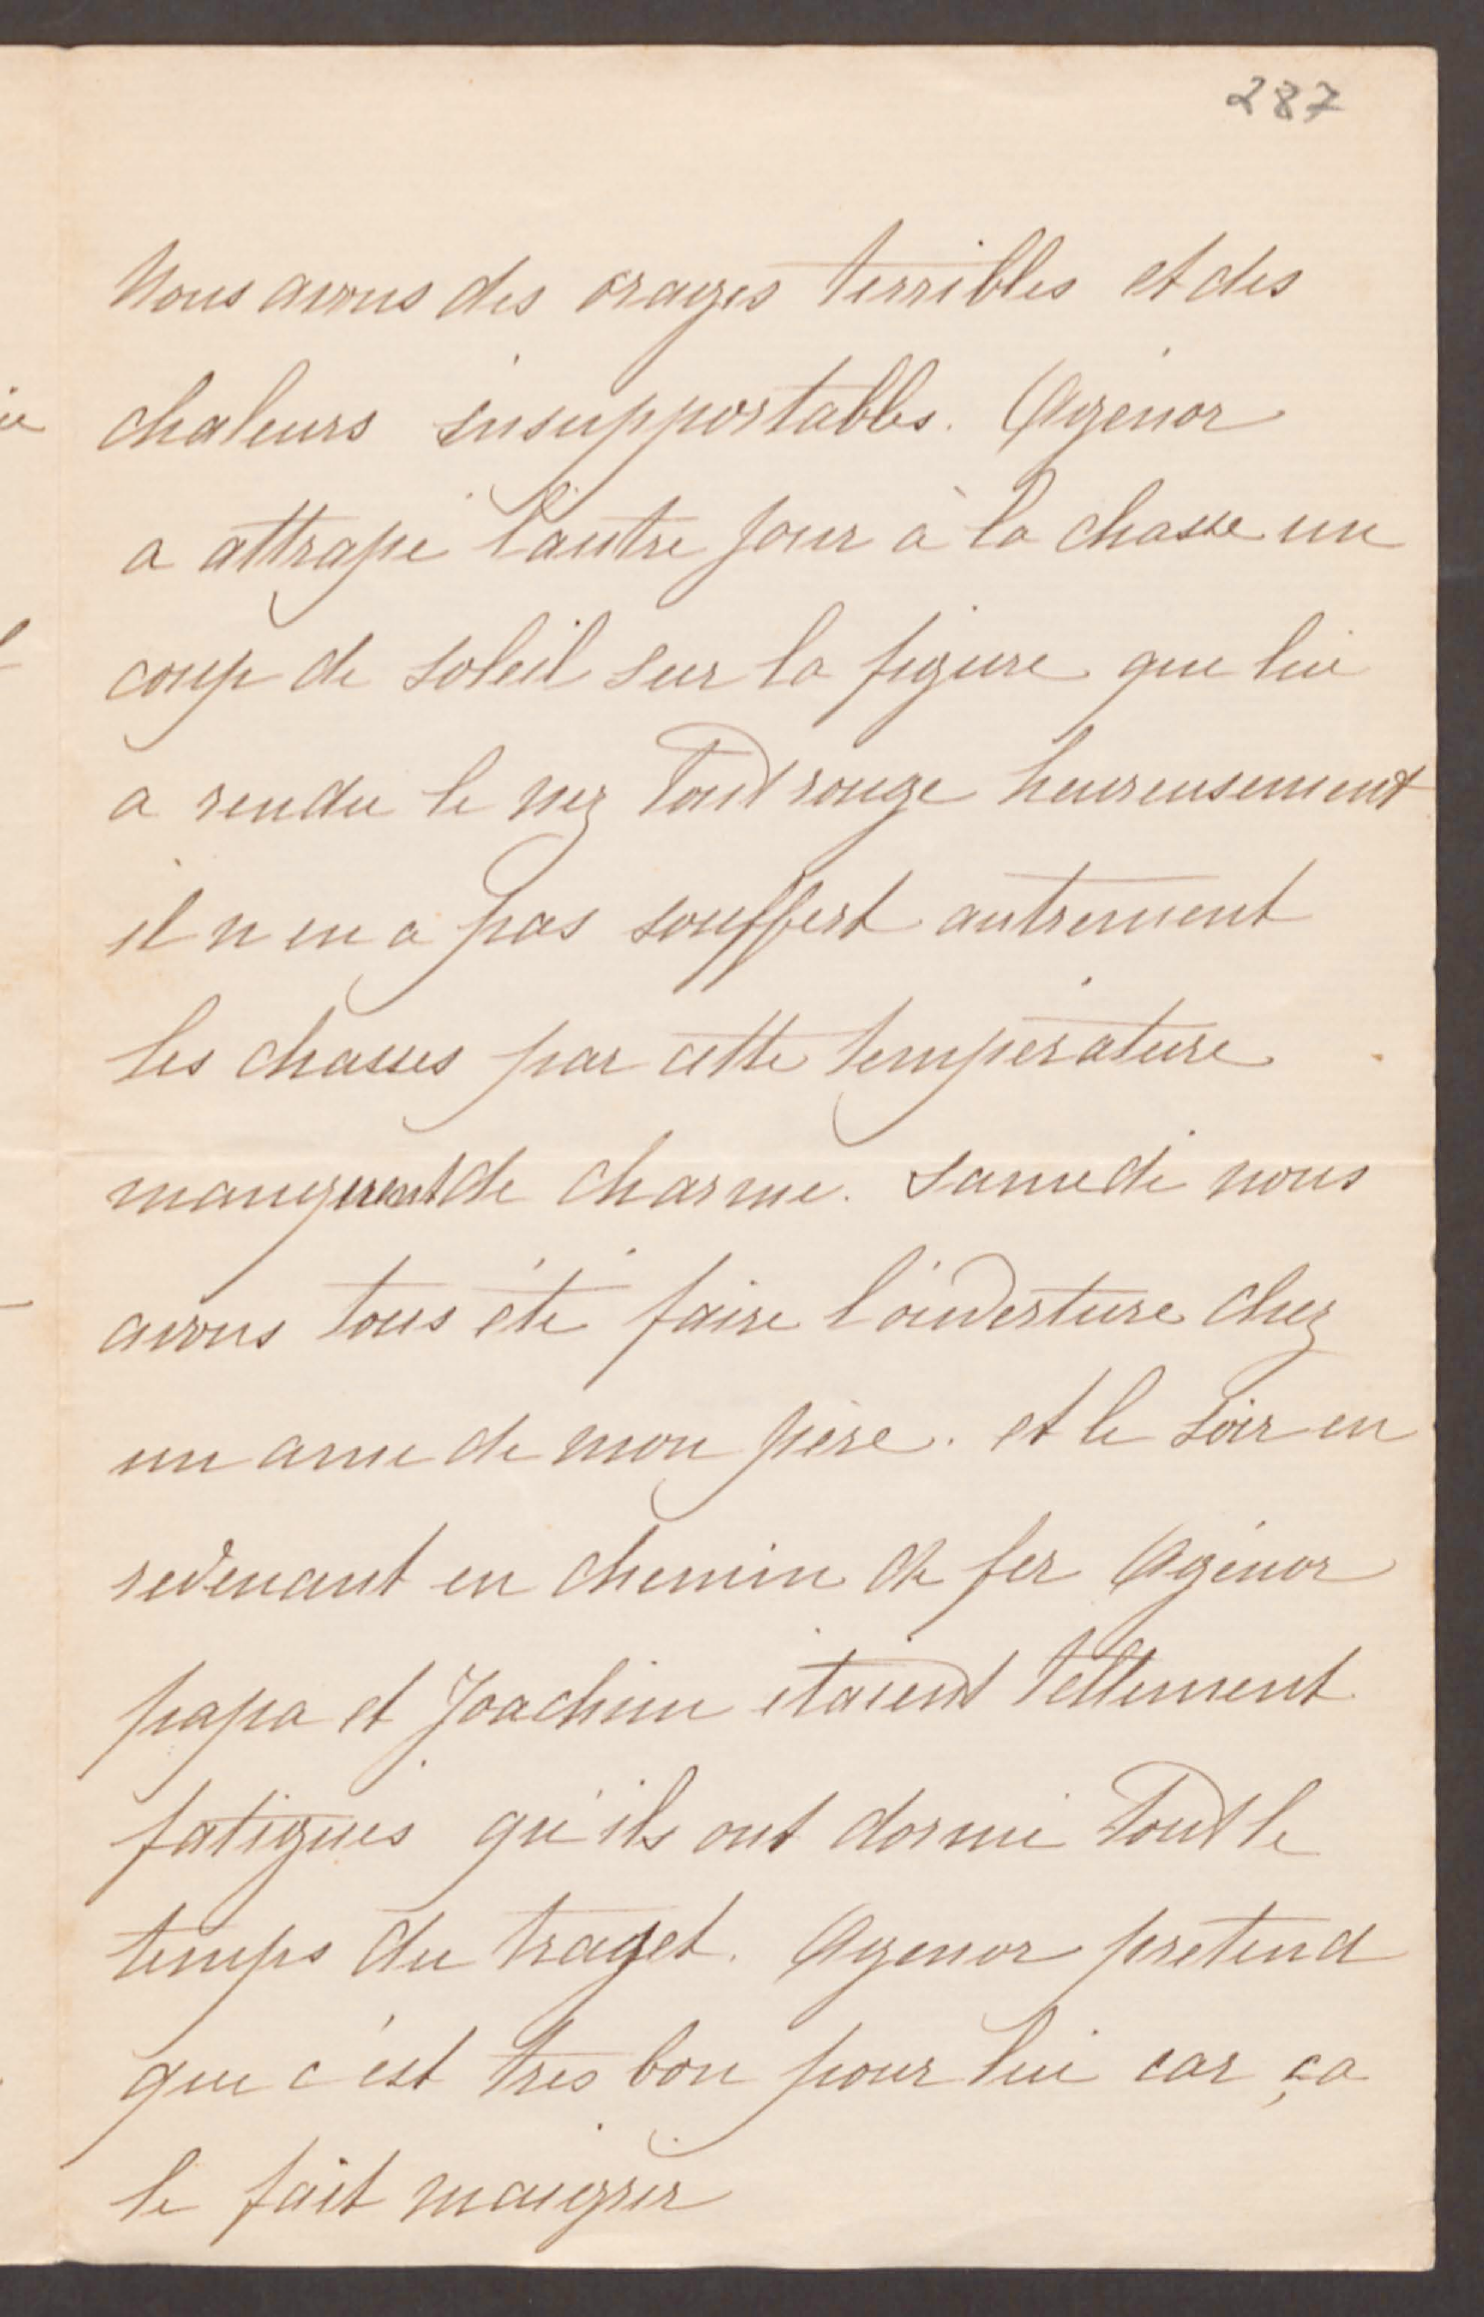 287
Nous avons des orages terribles et des
chaleurs insupportables. Agénor
a attrapé l'autre jour à la chasse un
coup de soleil sur la figure que lui
a rendu le nez tout rouge heureusement
il n en a pas souffert autrement
les chasses par cette température
manquent de charme. Samedi nous
avons tous été faire l'ouverture chez
un ami de mon père. et le soir en
revenant en chemin de fer Agénor
papa et Joachim étaient tellement
fatigués qu'ils ont dormi tout le
temps du traget. Agenor pretend
que c'est très bon pour lui car ça
le fait maigrir